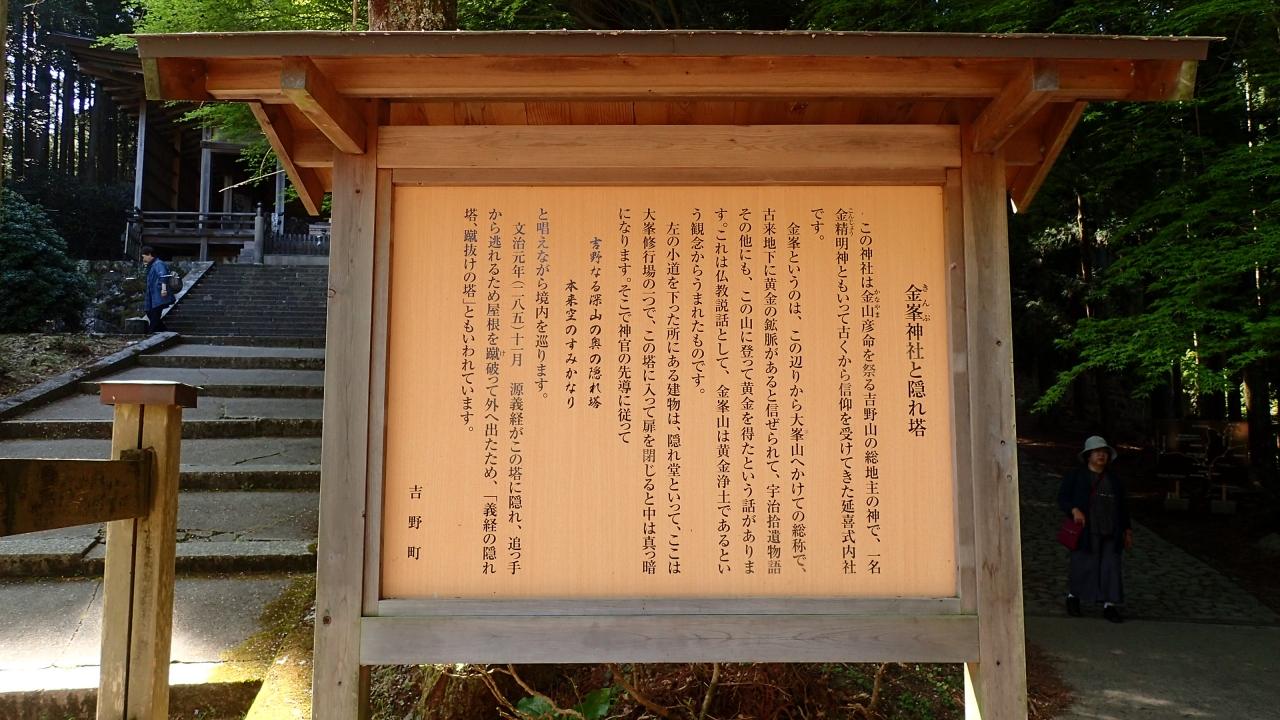 金峯神社と隠れ塔
きんぷ
この神社は金山彦命を祭る吉野山の総地主の神で、一名
かなやま
金精明神ともいって古くから信仰を受けてきた延喜式内社
こんしょう
です。
金峯というのは、この辺りから大峯山へかけての総称で、
古来地下に黄金の鉱脈があると信ぜられて、宇治拾遺物語
その他にも、この山に登って黄金を得たという話がありま
す。これは仏教説話として、金峯山は黄金浄土であるとい
う観念からうまれたものです。
左の小道を下った所にある建物は、隠れ堂といって、ここは
大峯修行場の一つで、この塔に入って扉を閉じると中は真っ暗
になります。そこで神官の先導に従って
吉野なる深山の奥の隠れ塔
本来空のすみかなり
と唱えながら境内を巡ります。
文治元年(一一八五)十一月 源義経がこの塔に隠れ、追っ手
から逃れるため屋根を蹴破って外へ出たため、「義経の隠れ
塔、蹴抜けの塔」ともいわれています。
吉野町